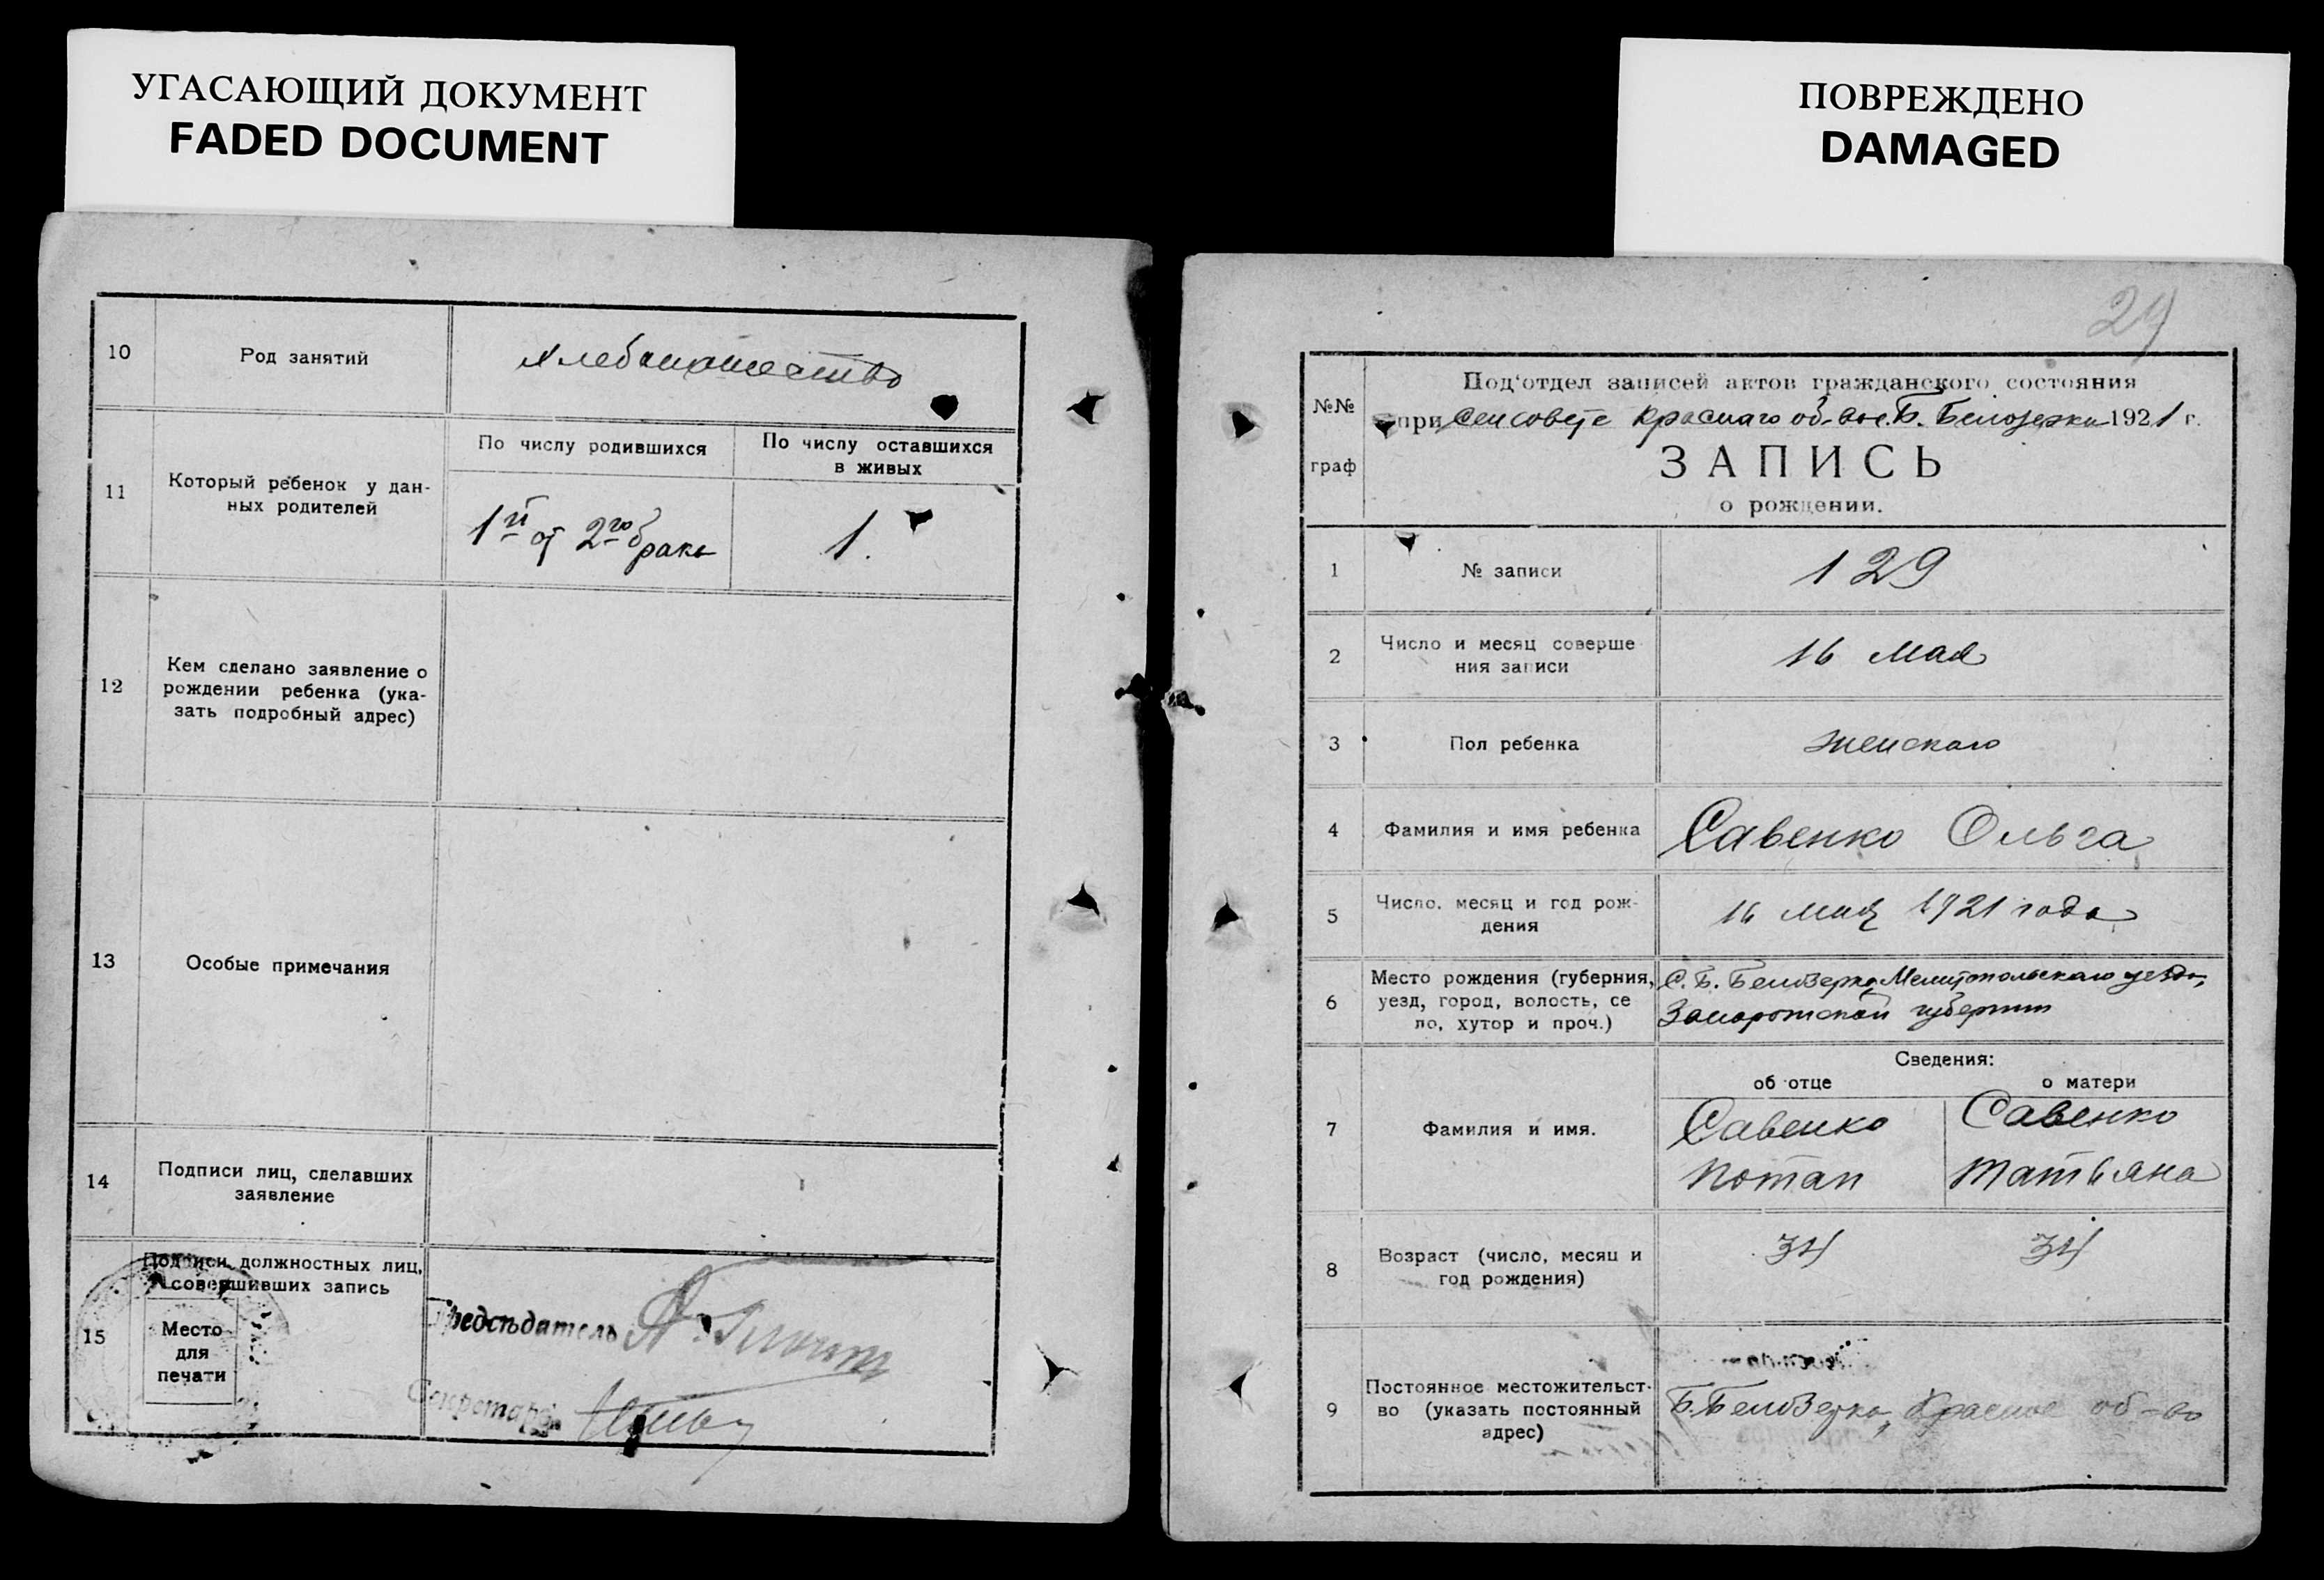 УГАСАЮЩИЙ ДОКУМЕНТ
FADED DOCUMENT
10
Род занятий
хлебопашество
11
Который ребенок у дан-
ных родителей
По числу родившихся
1й от 2го брака
По числу оставшихся
в живых
1.
12
Кем сделано заявление о
рождении ребенка (ука-
зать подробный адрес)
13
Особые примечания
14
Подписи лиц, сделавших
заявление
15
Подписи должностных лиц,
совершивших запись
Место
для
печати
Предсѣдатель
Секретарь
ПОВРЕЖДЕНО
DAMAGED
29
№№
граф
Под'отдел записей актов гражданского состояния
при сельсовете Краснаго об-ва с. Б. Белозерки 1921 г.
ЗАПИСЬ
о рождении.
1
№ записи
129
2
Число и месяц соверше
ния записи
16 мая
3
Пол ребенка
женскаго
4
Фамилия и имя ребенка
Савенко Ольга
5
Число, месяц и год рож-
дения
16 мая 1921 года
6
Место рождения (губерния,
уезд, город, волость, се
ло, хутор и проч.)
С. Б. Белозерка, Мелитопольскаго уезда,
Запорожской губернии
Сведения:
об отце
о матери
7
Фамилия и имя.
Савенко
Потап
Савенко
Татьяна
8
Возраст (число, месяц и
год рождения)
34
34
9
Постоянное местожительст-
во (указать постоянный
адрес)
Б. Белозерка, Красное об-во